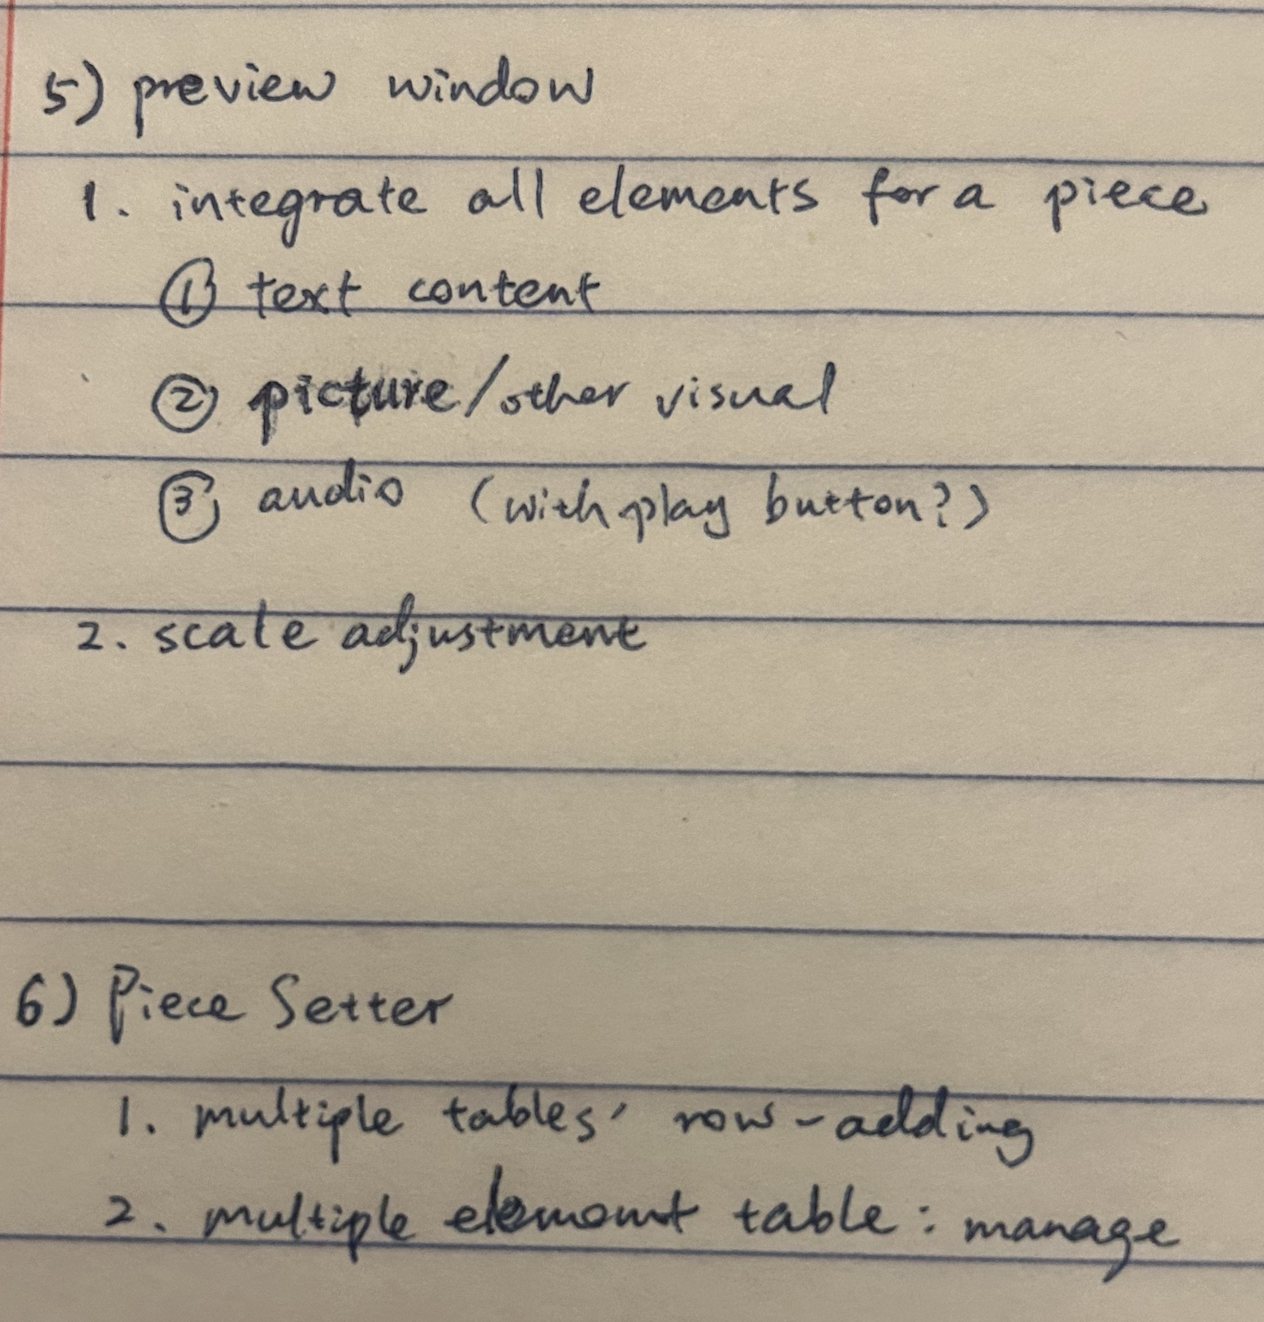 5) preview window
1. integrate all elements for a piece
① text content
② picture/other visual
③ audio (with play button?)
2. scale adjustment
6) Piece Setter
1. multiple tables' row-adding
2. multiple element table: manage